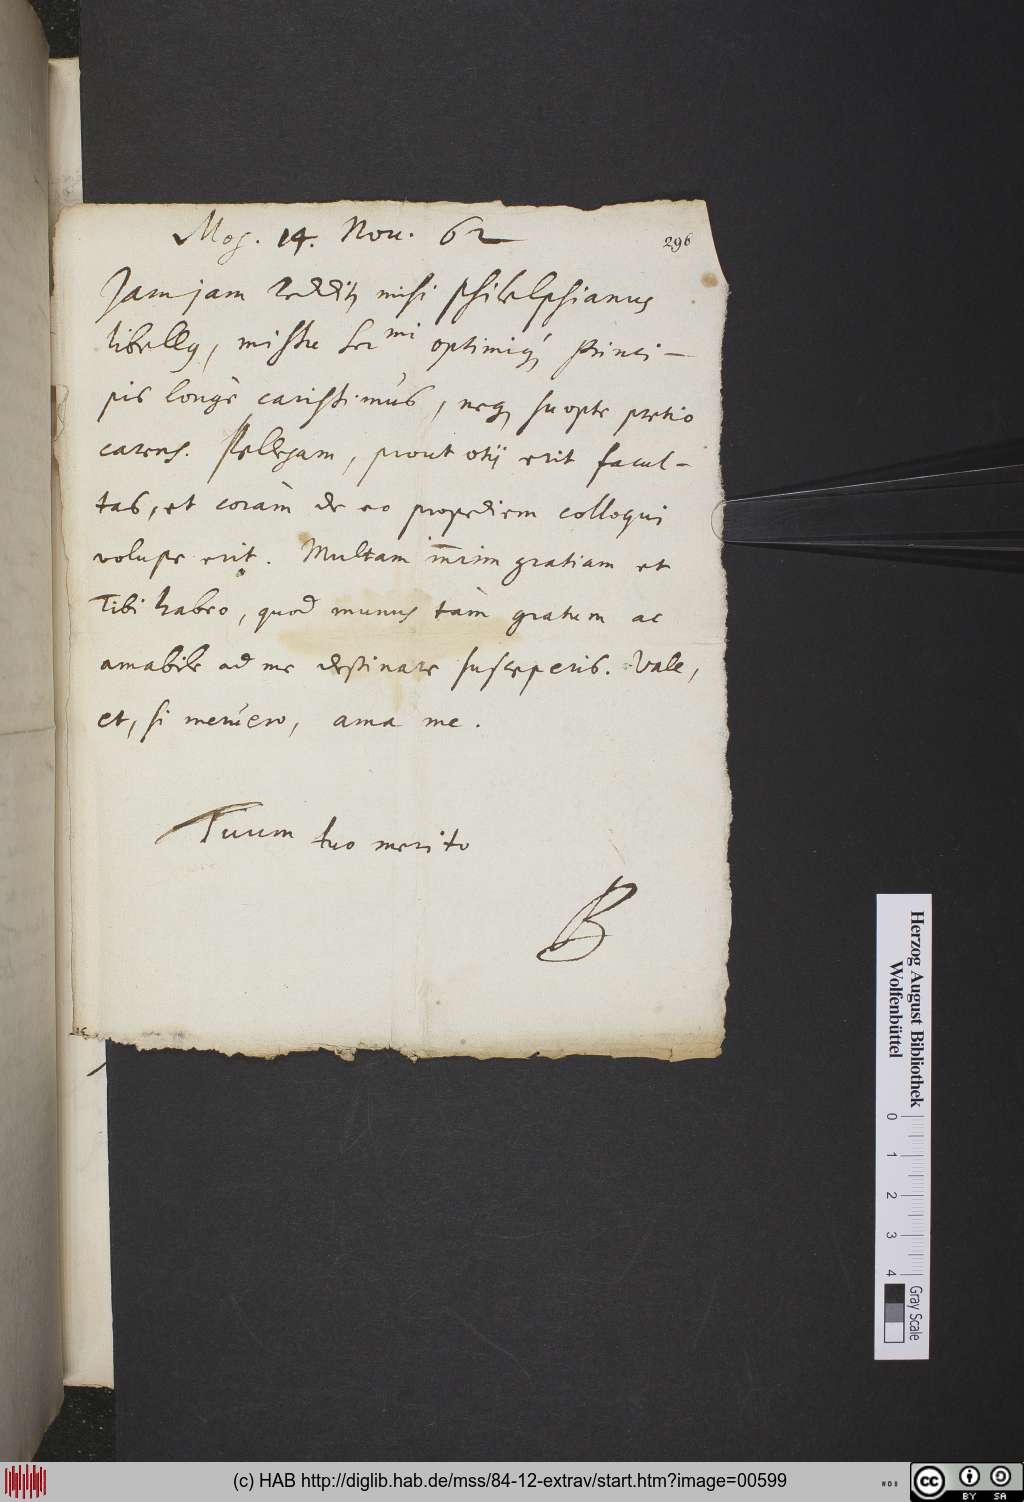 Mog. 14. Nov. 62
296
Jam jam redditꝫ mihi philelphianus
libellꝰ, missu Sermi optimiqꝫ Princi-
pis longè carissimus, neqꝫ suopte pretio
carens. Pellegam, prout otij erit facul-
tas, et coràm de eo propediem colloqui
volupe erit. Multam im̅rim gratiam et
Tibi habeo, quod munus tàm gratum ac
amabile ad me destinare susceperis. Vale,
et, si meruero, ama me.
Tuum tuo merito
B
Herzog August Bibliothek
Wolfenbüttel
0 1 2 3 4
Gray Scale
(c) HAB http://diglib.hab.de/mss/84-12-extrav/start.htm?image=00599
cc BY SA